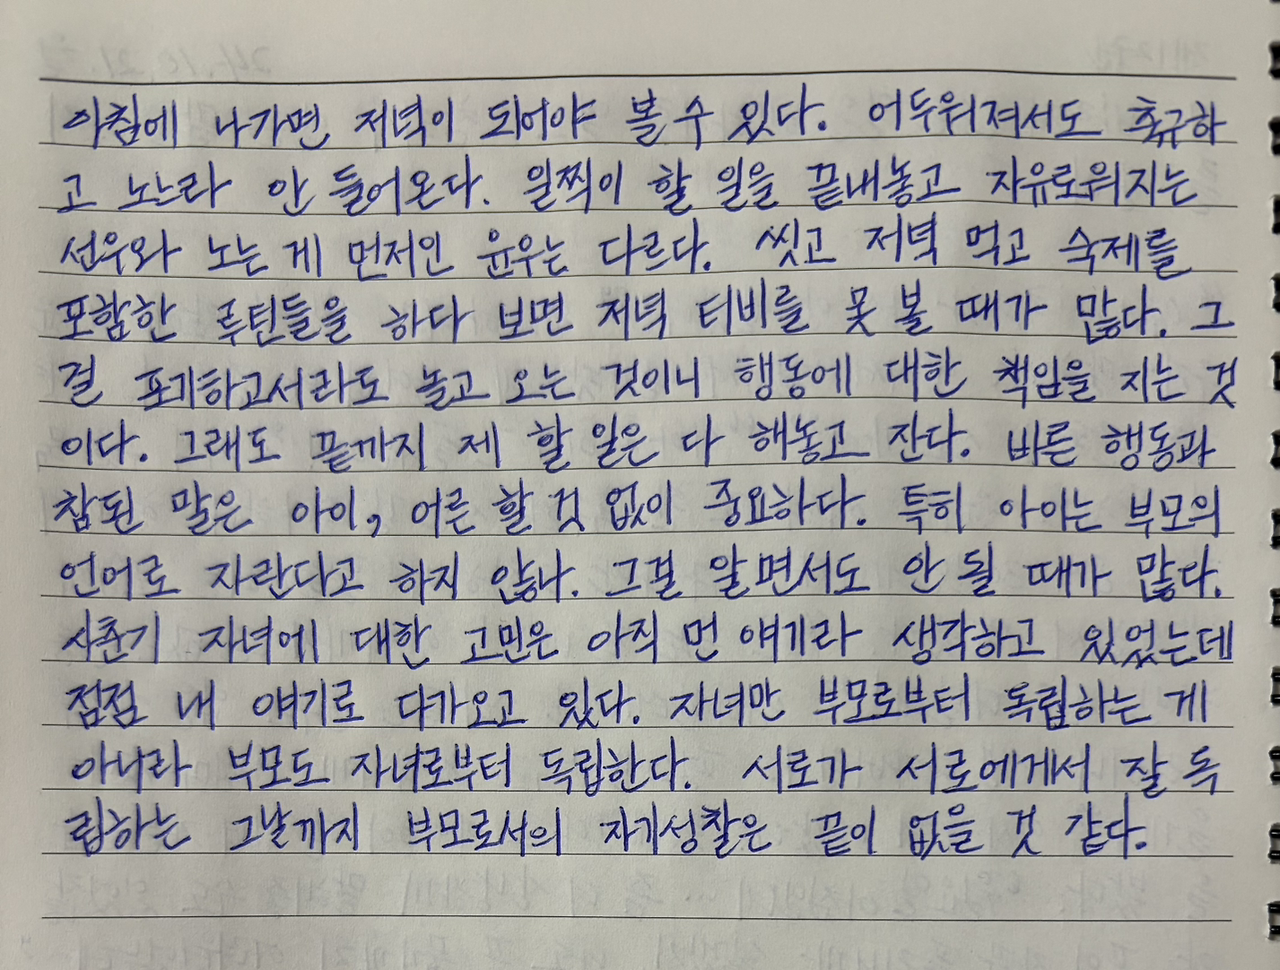 아침에 나가면 저녁이 되어야 볼 수 있다. 어두워져서도 축구하
고 노느라 안 들어온다. 일찍이 할 일을 끝내놓고 자유로워지는
선우와 노는 게 먼저인 윤우는 다르다. 씻고 저녁 먹고 숙제를
포함한 루틴들을 하다 보면 저녁 티비를 못 볼 때가 많다. 그
걸 포기하고서라도 놀고 오는 것이니 행동에 대한 책임을 지는 것
이다. 그래도 끝까지 제 할 일은 다 해놓고 잔다. 바른 행동과
참된 말은 아이, 어른 할 것 없이 중요하다. 특히 아이는 부모의
언어로 자란다고 하지 않나. 그걸 알면서도 안 될 때가 많다.
사춘기 자녀에 대한 고민은 아직 먼 얘기라 생각하고 있었는데
점점 내 얘기로 다가오고 있다. 자녀만 부모로부터 독립하는 게
아니라 부모도 자녀로부터 독립한다. 서로가 서로에게서 잘 독
립하는 그날까지 부모로서의 자기성찰은 끝이 없을 것 같다.